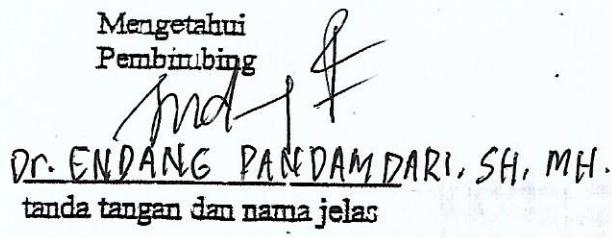 Mengetahui
Pembimbing
Dr. ENDANG PANDAMDARI, SH, MH.
tanda tangan dan nama jelas